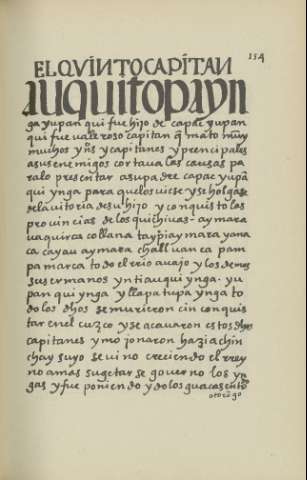 154
EL QVINTO CAPITAN
AUQUITOPAYN
ga yupan qui fue hijo de capac yupan
qui fue valleroso capitan q̄ mato muy
muchos yn̄s y capitanes y prencipales
a sus enemigos cortava las caueſas pa
ralo presentar a su padre capac yupā
qui ynga para que los uiese y se holgase
de la uitoria de su hijo y conquisto las
provincias de los quichiuas - aymara
uaquirca collana taypi aymara yana
ca cayau aymara challuanca pam
pamarca todo el rrio auajo y los demas
sus ermanos yntiauqui ynga - yu
panqui ynga y llapa tupa ynga to
dolos dhos se murieron cin conquis
tar en el cuzco y se acauaron estos dhos
capitanes y mojonaron hazia chin
chay suyo se uino creciendo el rrey
no a mas sugetar se governo los yn
gas y fue poniendo ydolos guacas en to